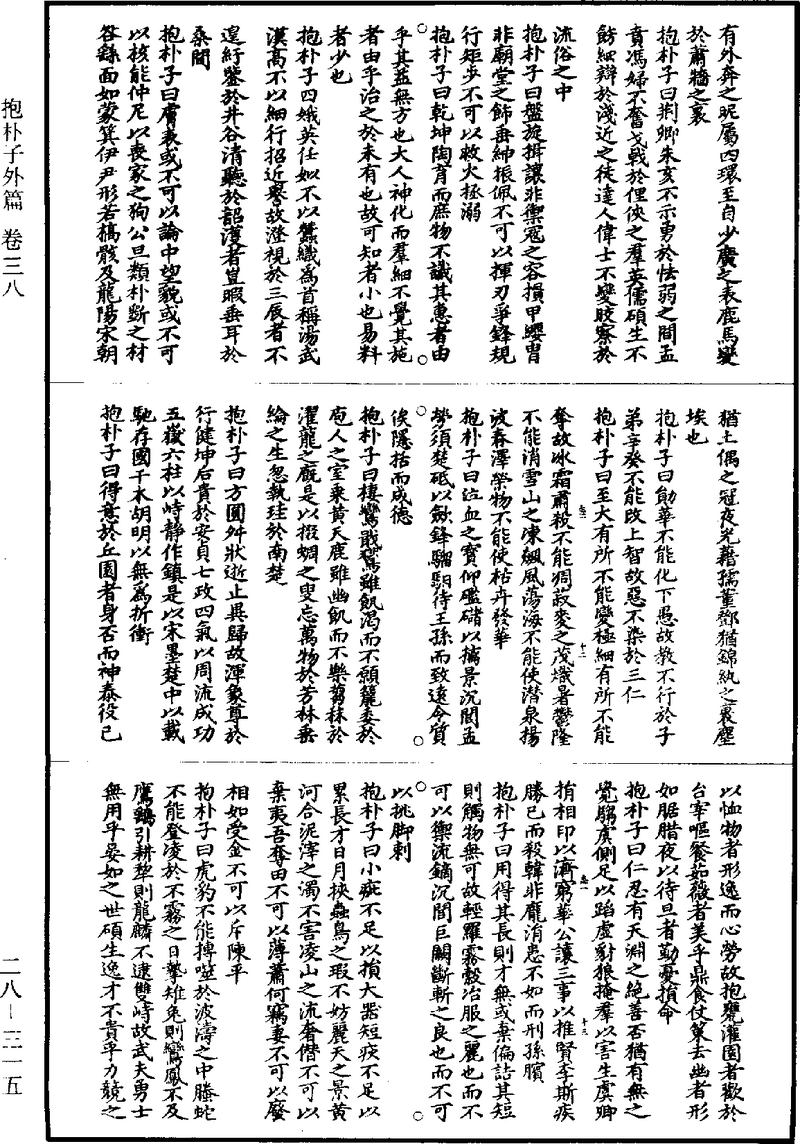 抱朴子外篇 卷三八
二八—三一五
有外奔之昵屬四環至自少廣之表鹿馬變
於蕭牆之裏
抱朴子曰荆卿朱亥不示勇於怯弱之間孟
賁馮婦不奮戈戟於俚俠之羣英儒碩生不
飾細辯於淺近之徒達人偉士不變皎察於
流俗之中
抱朴子曰盤旋揖讓非禦寇之容摜甲纓冑
非廟堂之飾垂紳振佩不可以揮刃爭鋒規
行矩步不可以救火拯溺
抱朴子曰乾坤陶育而庶物不識其惠者由
乎其益無方也大人神化而羣細不覺其施
者由乎治之於未有也故可知者小也易料
者少也
抱朴子四娥英任姒不以蠶織爲首稱湯武
漢高不以細行招近譽故澄視於三辰者不
遑紆鑒於井谷清聽於韶濩者豈暇垂耳於
桑間
抱朴子曰膚表或不可以論中望貌或不可
以核能仲尼以喪家之狗公旦類朴斲之材
咎繇面如蒙箕伊尹形若槁骸及龍陽宋朝
猶土偶之冠夜光藉孺董鄧猶錦紈之裹塵
埃也
抱朴子曰勛華不能化下愚故教不行於子
弟辛癸不能改上智故惡不染於三仁
抱朴子曰至大有所不能變極細有所不能
奪故冰霜肅殺不能凋菽麥之茂熾暑鬱隆
不能消雪山之凍飆風蕩海不能使潛泉揚
波春澤榮物不能使枯卉發華
抱朴子曰泣血之寶仰礛䃴以擒景沉閭孟
勞須楚砥以歛鋒騮駬待王孫而致遠令質
俟隱括而成德
抱朴子曰棲鸞戢鷟雖飢渴而不願籠委於
庖人之室乘黃天鹿雖幽飢而不樂芻秣於
濯龍之廄是以掇蜩之叟忘萬物於芳林垂
綸之生忽執珪於南楚
抱朴子曰方圓舛狀逝止異歸故渾象尊於
行健坤后貴於安貞七政四氣以周流成功
五嶽六柱以峙静作鎮是以宋墨楚申以載
馳存國干木胡明以無爲折衝
抱朴子曰得意於丘園者身否而神泰役己
以恤物者形逸而心勞故抱甕灌園者歡於
台宰嘔餐茹薇者美乎鼎食仗策去豳者形
如腒腊夜以待旦者勤憂損命
抱朴子曰仁忍有天淵之絶善否猶有無之
覺騶虞側足以蹈虛豺狼掩羣以害生虞卿
捐相印以濟窮華公讓三事以推賢李斯疾
勝己而殺韓非龐涓患不如而刑孫臏
抱朴子曰用得其長則才無或棄偏詰其短
則觸物無可故輕羅霧縠冶服之麗也而不
可以禦流鏑沉閭巨闕斷斬之良也而不可
以挑脚剌
抱朴子曰小疵不足以損大器短疾不足以
累長才日月挾蟲鳥之瑕不妨麗天之景黃
河合泥滓之濁不害凌山之流奢僭不可以
棄夷吾奪田不可以薄蕭何竊妻不可以廢
相如受金不可以斥陳平
抱朴子曰虎豹不能搏噬於波濤之中螣蛇
不能登凌於不霧之日摯雉兔則鸞鳳不及
鷹鷂引耕犂則龍麟不逮雙峙故武夫勇士
無用乎晏如之世碩生逸才不貴乎力競之